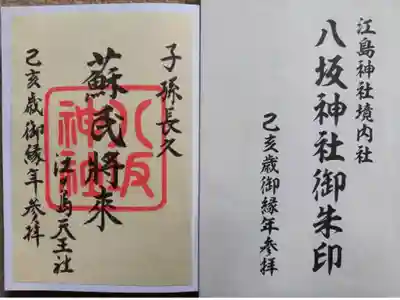 子孫長久
蘇民将来
江ノ島天王社
己亥歳御縁年参拝
八坂神社
江島神社境内社
八坂神社御朱印
己亥歳御縁年参拝